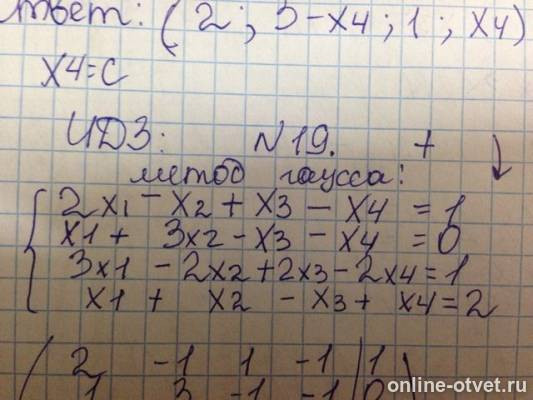 Ответ: (2; 3-x4; 1; x4)
x4=c
ИДЗ: N19. +
метод гаусса:
2x1 - x2 + x3 - x4 = 1
x1 + 3x2 - x3 - x4 = 0
3x1 - 2x2 + 2x3 - 2x4 = 1
x1 + x2 - x3 + x4 = 2
2 -1 1 -1 | 1
1 3 -1 -1 | 0
online-otvet.ru